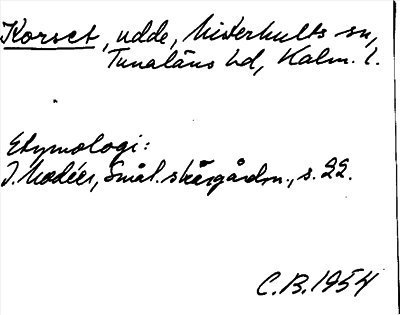 Korset, udde, Misterhults sn,
Tunaläns hd, Kalm. l.
Etymologi:
I. Modéer, Smål. skärgårdsn., s. 22.
C.B. 1954